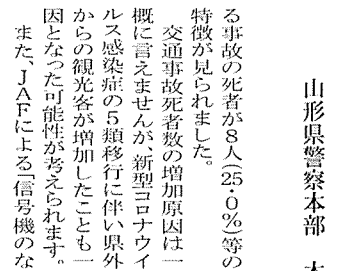 山形県警察本部
る事故の死者が8人(25・0%)等の
特徴が見られました。
交通事故死者数の増加原因は一
概に言えませんが、新型コロナウイ
ルス感染症の5類移行に伴い県外
からの観光客が増加したことも一
因となった可能性が考えられます。
また、JAFによる「信号機のな